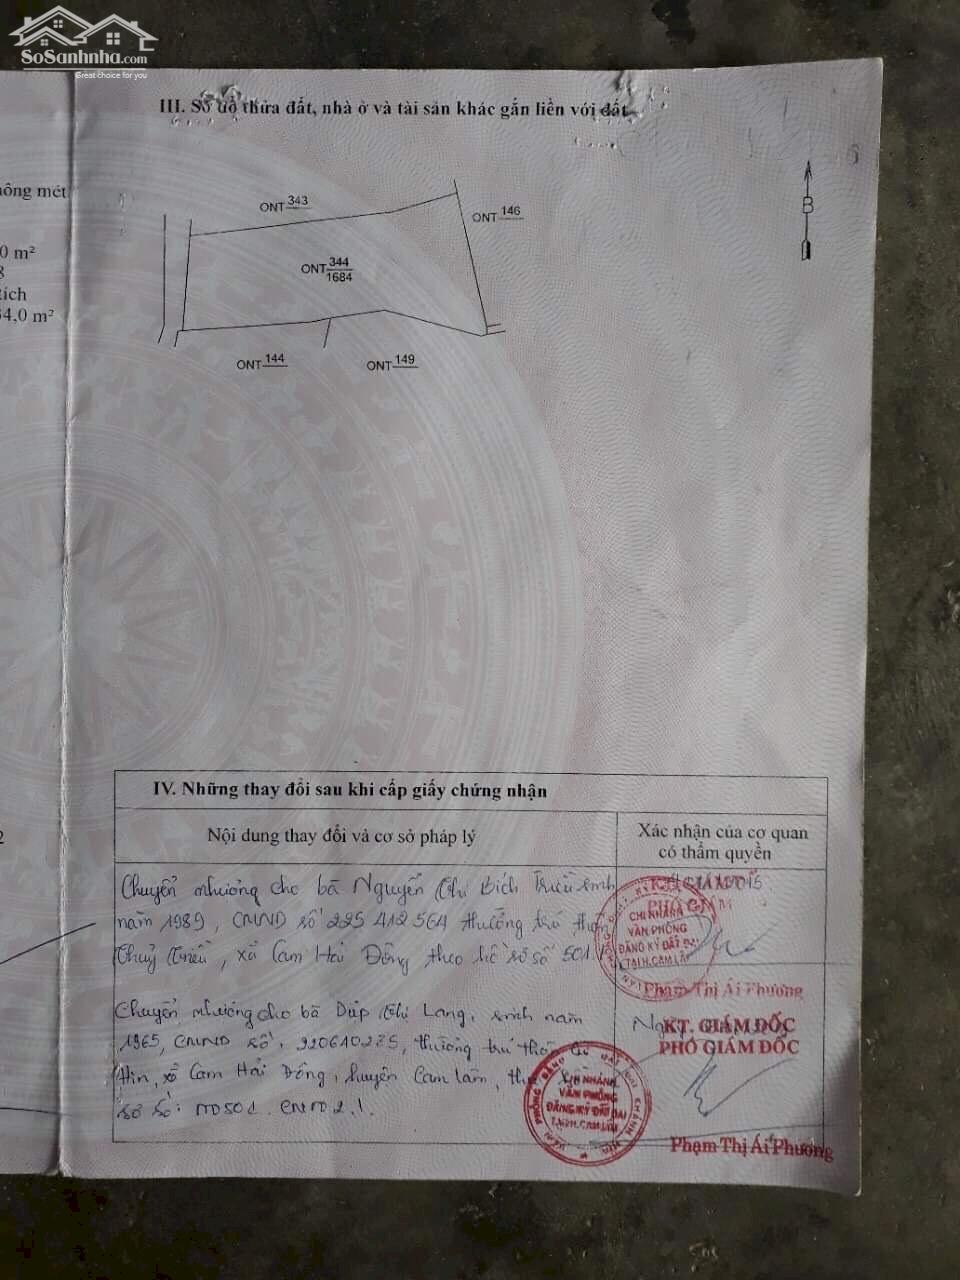 SoSanhnha.com
Great choice for you
III. Sơ đồ thửa đất, nhà ở và tài sản khác gắn liền với đất
hông mét
0 m²
8
tích
34,0 m²
ONT 343
ONT 146
B
ONT 344
1684
ONT 144
ONT 149
2
IV. Những thay đổi sau khi cấp giấy chứng nhận
Nội dung thay đổi và cơ sở pháp lý
Xác nhận của cơ quan
có thẩm quyền
Chuyển nhượng cho bà Nguyễn Thị Bích Triều sinh
năm 1989, CMND số 225 412 564 thường trú thôn
Thuỷ Triều, xã Cam Hải Đông theo hồ sơ số 501.
KT. GIÁM ĐỐC
PHÓ GIÁM
CHI NHÁNH
VĂN PHÒNG
ĐĂNG KÝ ĐẤT ĐAI
TẠI H. CAM LÂM
Phạm Thị Ái Phương
Chuyển nhượng cho bà Diệp Thị Lang, sinh năm
1965, CMND số: 220610275, thường trú thôn
xã Cam Hải Đông, huyện Cam Lâm,
sơ số:
KT. GIÁM ĐỐC
PHÓ GIÁM ĐỐC
VĂN PHÒNG ĐĂNG KÝ ĐẤT ĐAI KHÁNH HÒA
CHI NHÁNH
VĂN PHÒNG
ĐĂNG KÝ ĐẤT ĐAI
TẠI H. CAM LÂM
Phạm Thị Ái Phương